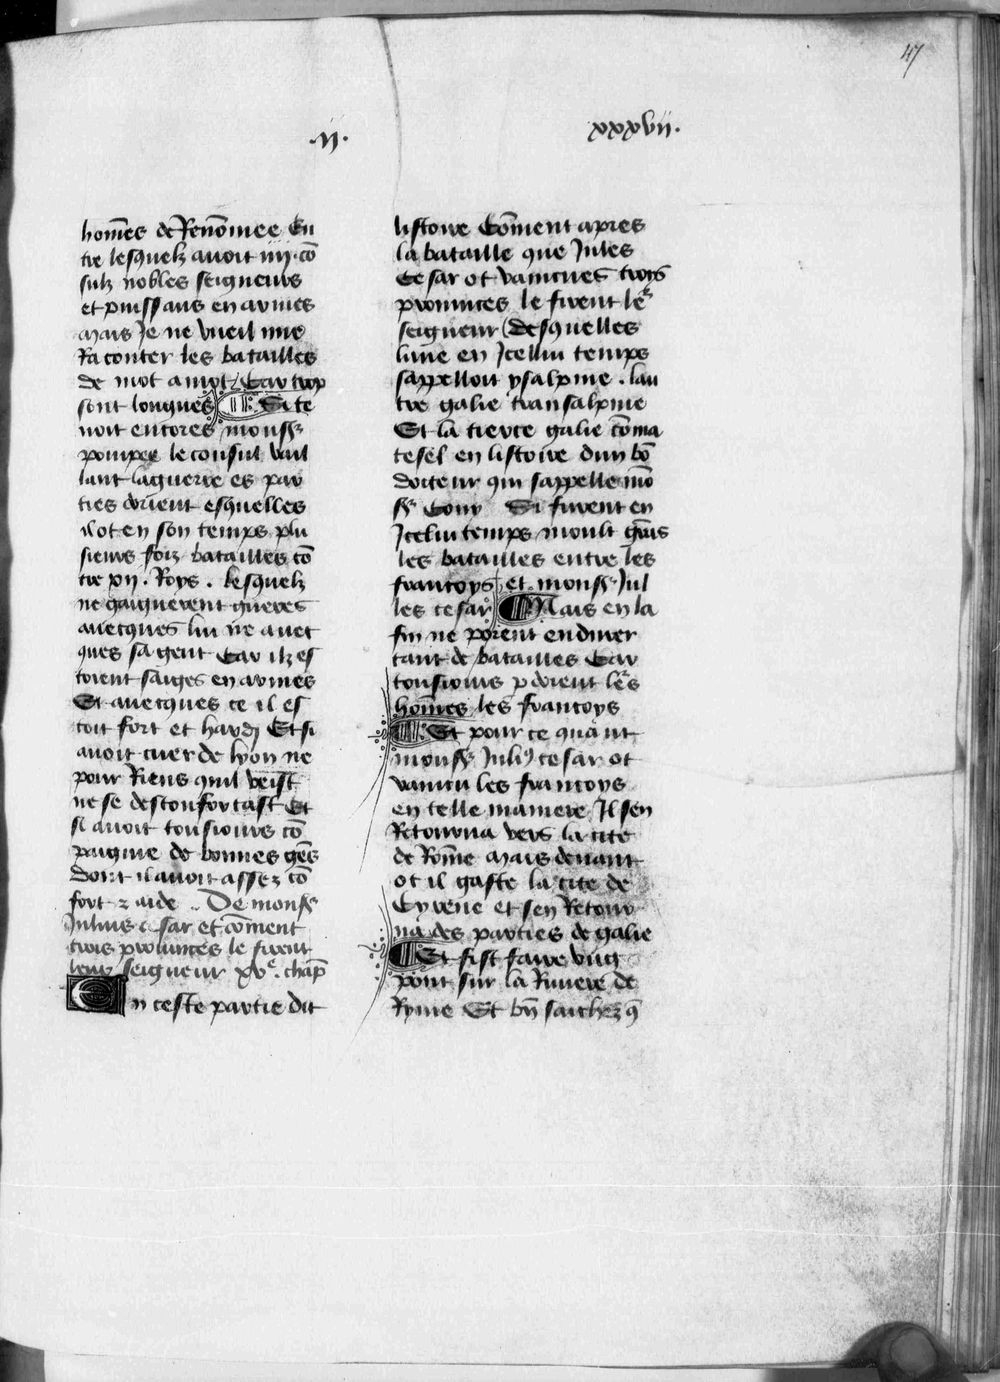 47
.ii.
xxxvii.
hom̃es de Renom̃ee En
tre lesquelz auoit iiii. cō
sulz nobles seigneurs
et puissans en armes
Mais Je ne vueil mie
Raconter les batailles
de mot a mot Car trop
sont longues ¶ Si te
noit encores monsr̃
pompee le consul vail
lant laguerre es par
ties dorient esquelles
il ot en son temps plu
sieurs foiz batailles cō
tre xii. Roys. lesquelz
ne gaignerent gueres
auecques lui ne auec
ques sa gent Car ilz es
toient saiges en armes
Et auecques ce il es
toit fort et hardj Et si
auoit cuer de lyon ne
pour Riens quil veist
ne se desconfortast Et
si auoit tousiours cō
paignie de bonnes gẽs
dont il auoit assez cō
fort z aide. De monsr̃
Julius cesar et cōment
trois prouinces le firent
leur seigneur xve. chap̃
En ceste partie dit
listoire Cōment apres
la bataille que Jules
Cesar ot vaincues troys
prouinces le firent ler̃
seigneur desquelles
lune en Jcellui temps
sappelloit ysalpine. lau
tre galie transalpine
Et la tierce galie cōma
te sel en listoire dun bō
docteur qui sappelle mō
sr̃ Si furent en
Jcelui temps moult grãs
les batailles entre les
francoys et monsr̃ Jul
les cesar ¶ Mais en la
fin ne porent endurer
tant de batailles Car
tousiours p̱doient lers̃
hom̃es les francoys
¶ Et pour ce quant
monsr̃ Juliꝯ cesar ot
vaincu les francoys
en telle maniere Il sen
Retourna vers la cite
de Rom̃e Mais deuant
ot il gaste la cite de
Cyrene et sen Retour
na des parties de galie
¶ Et fist faire vng
pont sur la Riuiere de
Ryme Et bñ saichez q̃